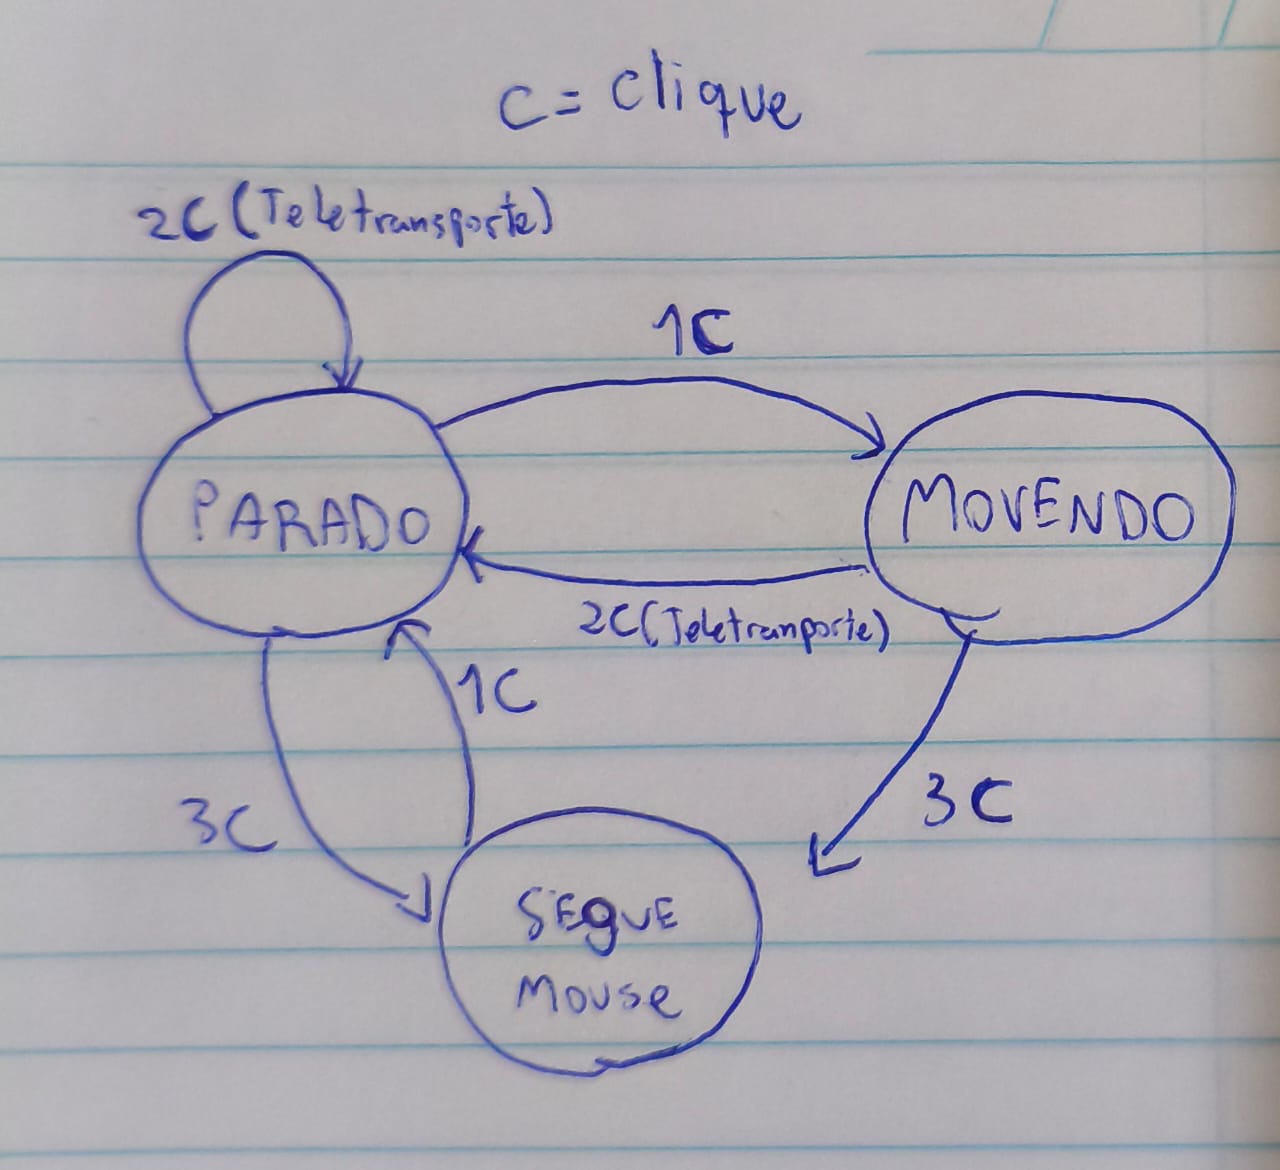 C = Clique
2C (Teletransporte)
1C
PARADO
MOVENDO
2C (Teletranporte)
1C
3C
3C
SEgUE
MOUSe